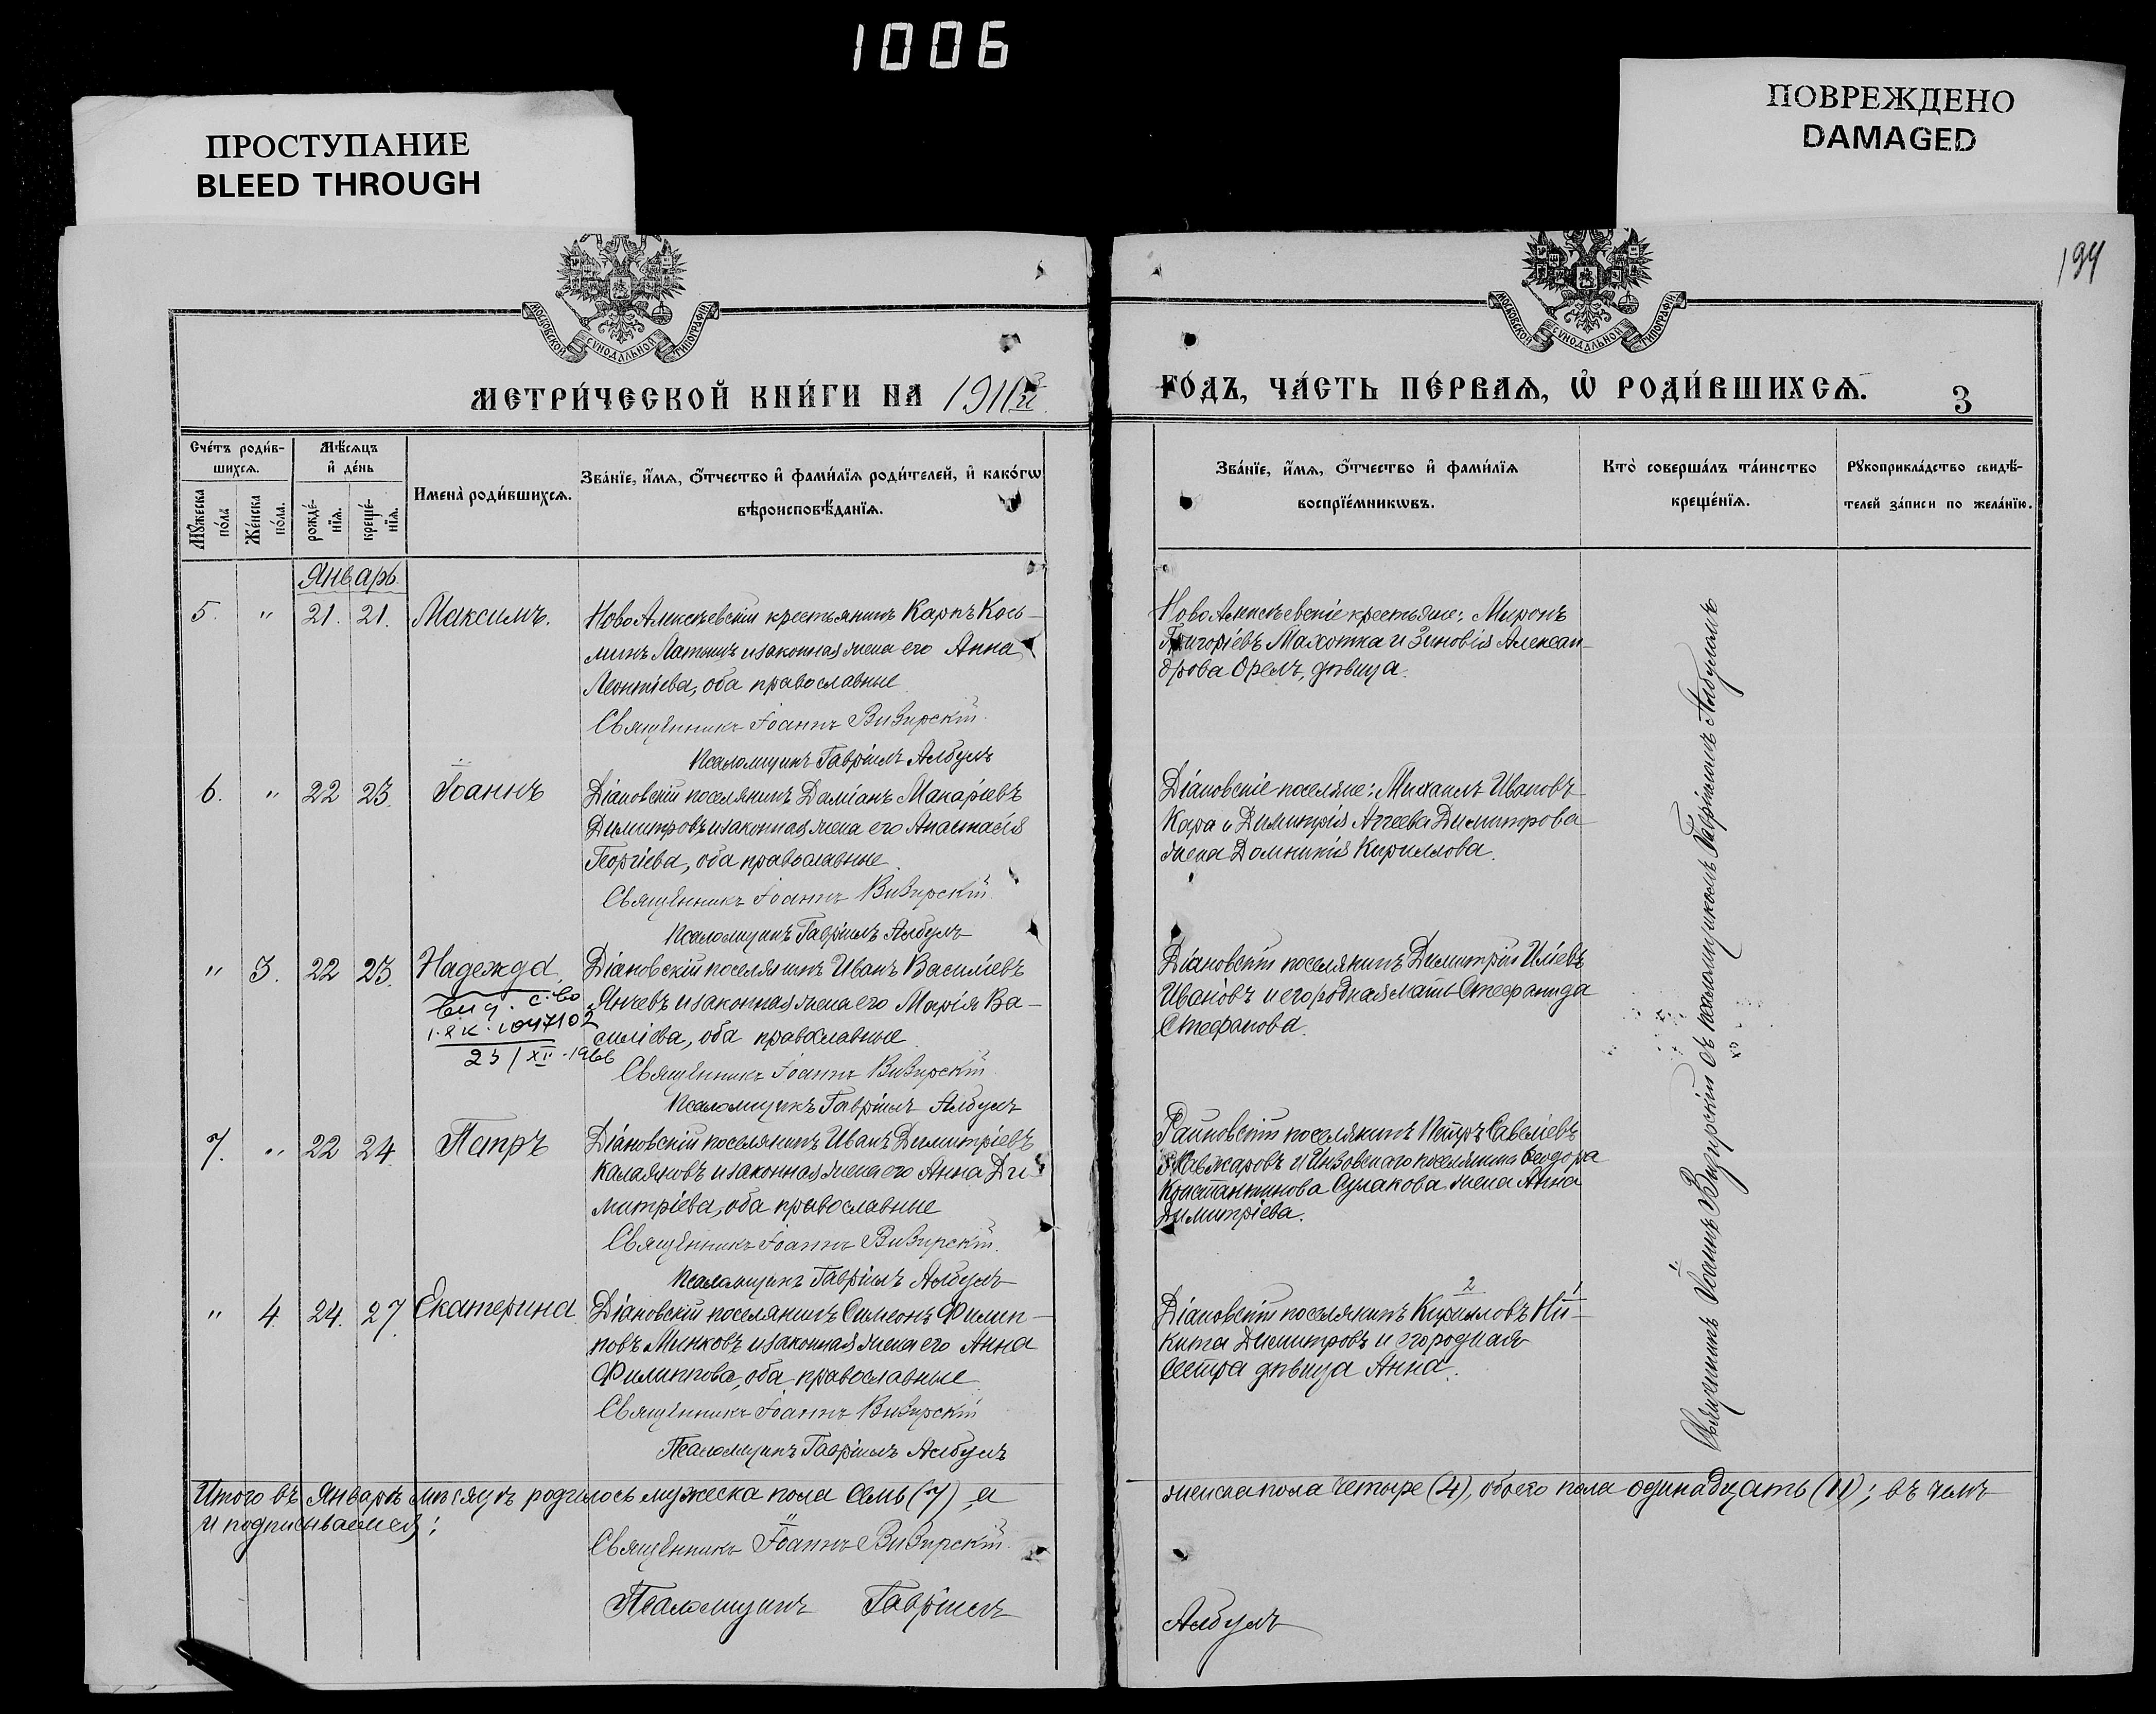 1006
ПРОСТУПАНИЕ
BLEED THROUGH
ПОВРЕЖДЕНО
DAMAGED
194
МОСКОВСКОЙ СУНОДАЛЬНОЙ ТИПОГРАФІИ
МОСКОВСКОЙ СУНОДАЛЬНОЙ ТИПОГРАФІИ
МЕТРИ́ЧЕСКОЙ КНИ́ГИ НА 1911й
ГО́ДЪ, ЧА́СТЬ ПЕ́РВАѦ, Ѡ҆ РОДИ́ВШИХСѦ.
3
Сче́тъ роди́в-
шихсѧ.
Мѣ́сѧцъ
и҆ де́нь
Имена̀ роди́вшихсѧ.
Зва́нїе, и҆́мѧ, ѻ҆́тчество и҆ фами́лїѧ роди́телей, и҆ како́гѡ
вѣроисповѣ́данїѧ.
Мꙋ́жеска
по́ла
Же́нска
по́ла.
рожде́-
нїѧ.
креще́-
нїѧ.
Зва́нїе, и҆́мѧ, ѻ҆́тчество и҆ фами́лїѧ
воспрїе́мникѡвъ.
Кто̀ соверша́лъ та́инство
креще́нїѧ.
Рꙋкоприкла́дство свидѣ́-
телей за́писи по жела́нїю.
Январь.
5. " 21. 21. Максимъ.
НовоАлексѣевскій крестьянинъ Карпъ Кось-
минъ Латышъ и законная жена его Анна
Леонтіева, оба православные
Священникъ Іоаннъ Визирскій.
Псаломщикъ Гавріилъ Албулъ
НовоАлексѣевскіе крестьяне: Миронъ
Григоріевъ Махотка и Зиновія Алексан-
дрова Орелъ, дѣвица.
6. " 22 23. Іоаннъ
Діановскій поселянинъ Даміанъ Макаріевъ
Димитровъ и законная жена его Анастасія
Георгіева, оба православные.
Священникъ Іоаннъ Визирскій.
Псаломщикъ Гавріилъ Албулъ
Діановскіе поселяне: Михаилъ Ивановъ
Кара и Димитрія Аггеева Димитрова
жена Домникія Кириллова.
" 3. 22 23. Надежда
1047102
23/XII-1966
Діановскій поселянинъ Иванъ Василіевъ
Янчевъ и законная жена его Марія Ва-
силіева, оба православные
Священникъ Іоаннъ Визирскій.
Псаломщикъ Гавріилъ Албулъ
Діановскій поселянинъ Димитрій Иліевъ
Ивановъ и его родная мать Стефанида
Стефанова.
7. " 22 24. Петръ
Діановскій поселянинъ Иванъ Димитріевъ
Калаяновъ и законная жена его Анна Ди-
митріева, оба православные
Священникъ Іоаннъ Визирскій.
Псаломщикъ Гавріилъ Албулъ
поселянинъ Петръ Савеліевъ
и поселянина Ѳеодора
Константинова Сулакова жена Анна
Димитріева.
" 4. 24. 27. Екатерина.
Діановскій поселянинъ Симеонъ Филип-
повъ Минковъ и законная жена его Анна
Филиппова, оба православные
Священникъ Іоаннъ Визирскій
Псаломщикъ Гавріилъ Албулъ
2 1
Діановскій поселянинъ Кирилловъ Ни-
кита Димитровъ и его родная
сестра дѣвица Анна.
Священникъ Іоаннъ Визирскій съ псаломщикомъ Гавріиломъ Албуломъ
Итого въ Январѣ мѣсяцѣ родилось мужеска пола семь (7) а
женска пола четыре (4), обоего пола одинадцать (11); въ чемъ
и подписываемся:
Священникъ Іоаннъ Визирскій.
Псаломщикъ Гавріилъ
Албулъ